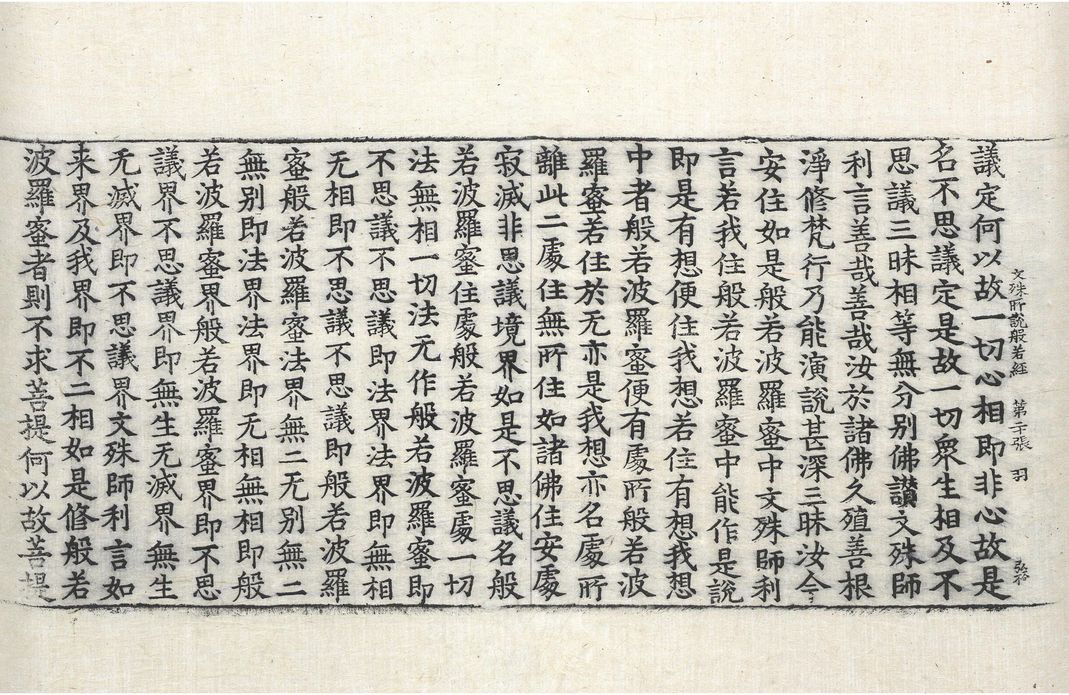 文殊所說般若經 第二十張 羽 弘裕
議定何以故一切心相即非心故是
名不思議定是故一切衆生相及不
思議三昧相等無分别佛讚文殊師
利言善哉善哉汝於諸佛久殖善根
淨修梵行乃能演說甚深三昧汝今
安住如是般若波羅蜜中文殊師利
言若我住般若波羅蜜中能作是說
即是有想便住我想若住有想我想
中者般若波羅蜜便有處所般若波
羅蜜若住於无亦是我想亦名處所
離此二處住無所住如諸佛住安處
寂滅非思議境界如是不思議名般
若波羅蜜住處般若波羅蜜處一切
法無相一切法无作般若波羅蜜即
不思議不思議即法界法界即無相
无相即不思議不思議即般若波羅
蜜般若波羅蜜法界無二无别無二
無别即法界法界即无相無相即般
若波羅蜜界般若波羅蜜界即不思
議界不思議界即無生无滅界無生
无滅界即不思議界文殊師利言如
来界及我界即不二相如是修般若
波羅蜜者則不求菩提何以故菩提